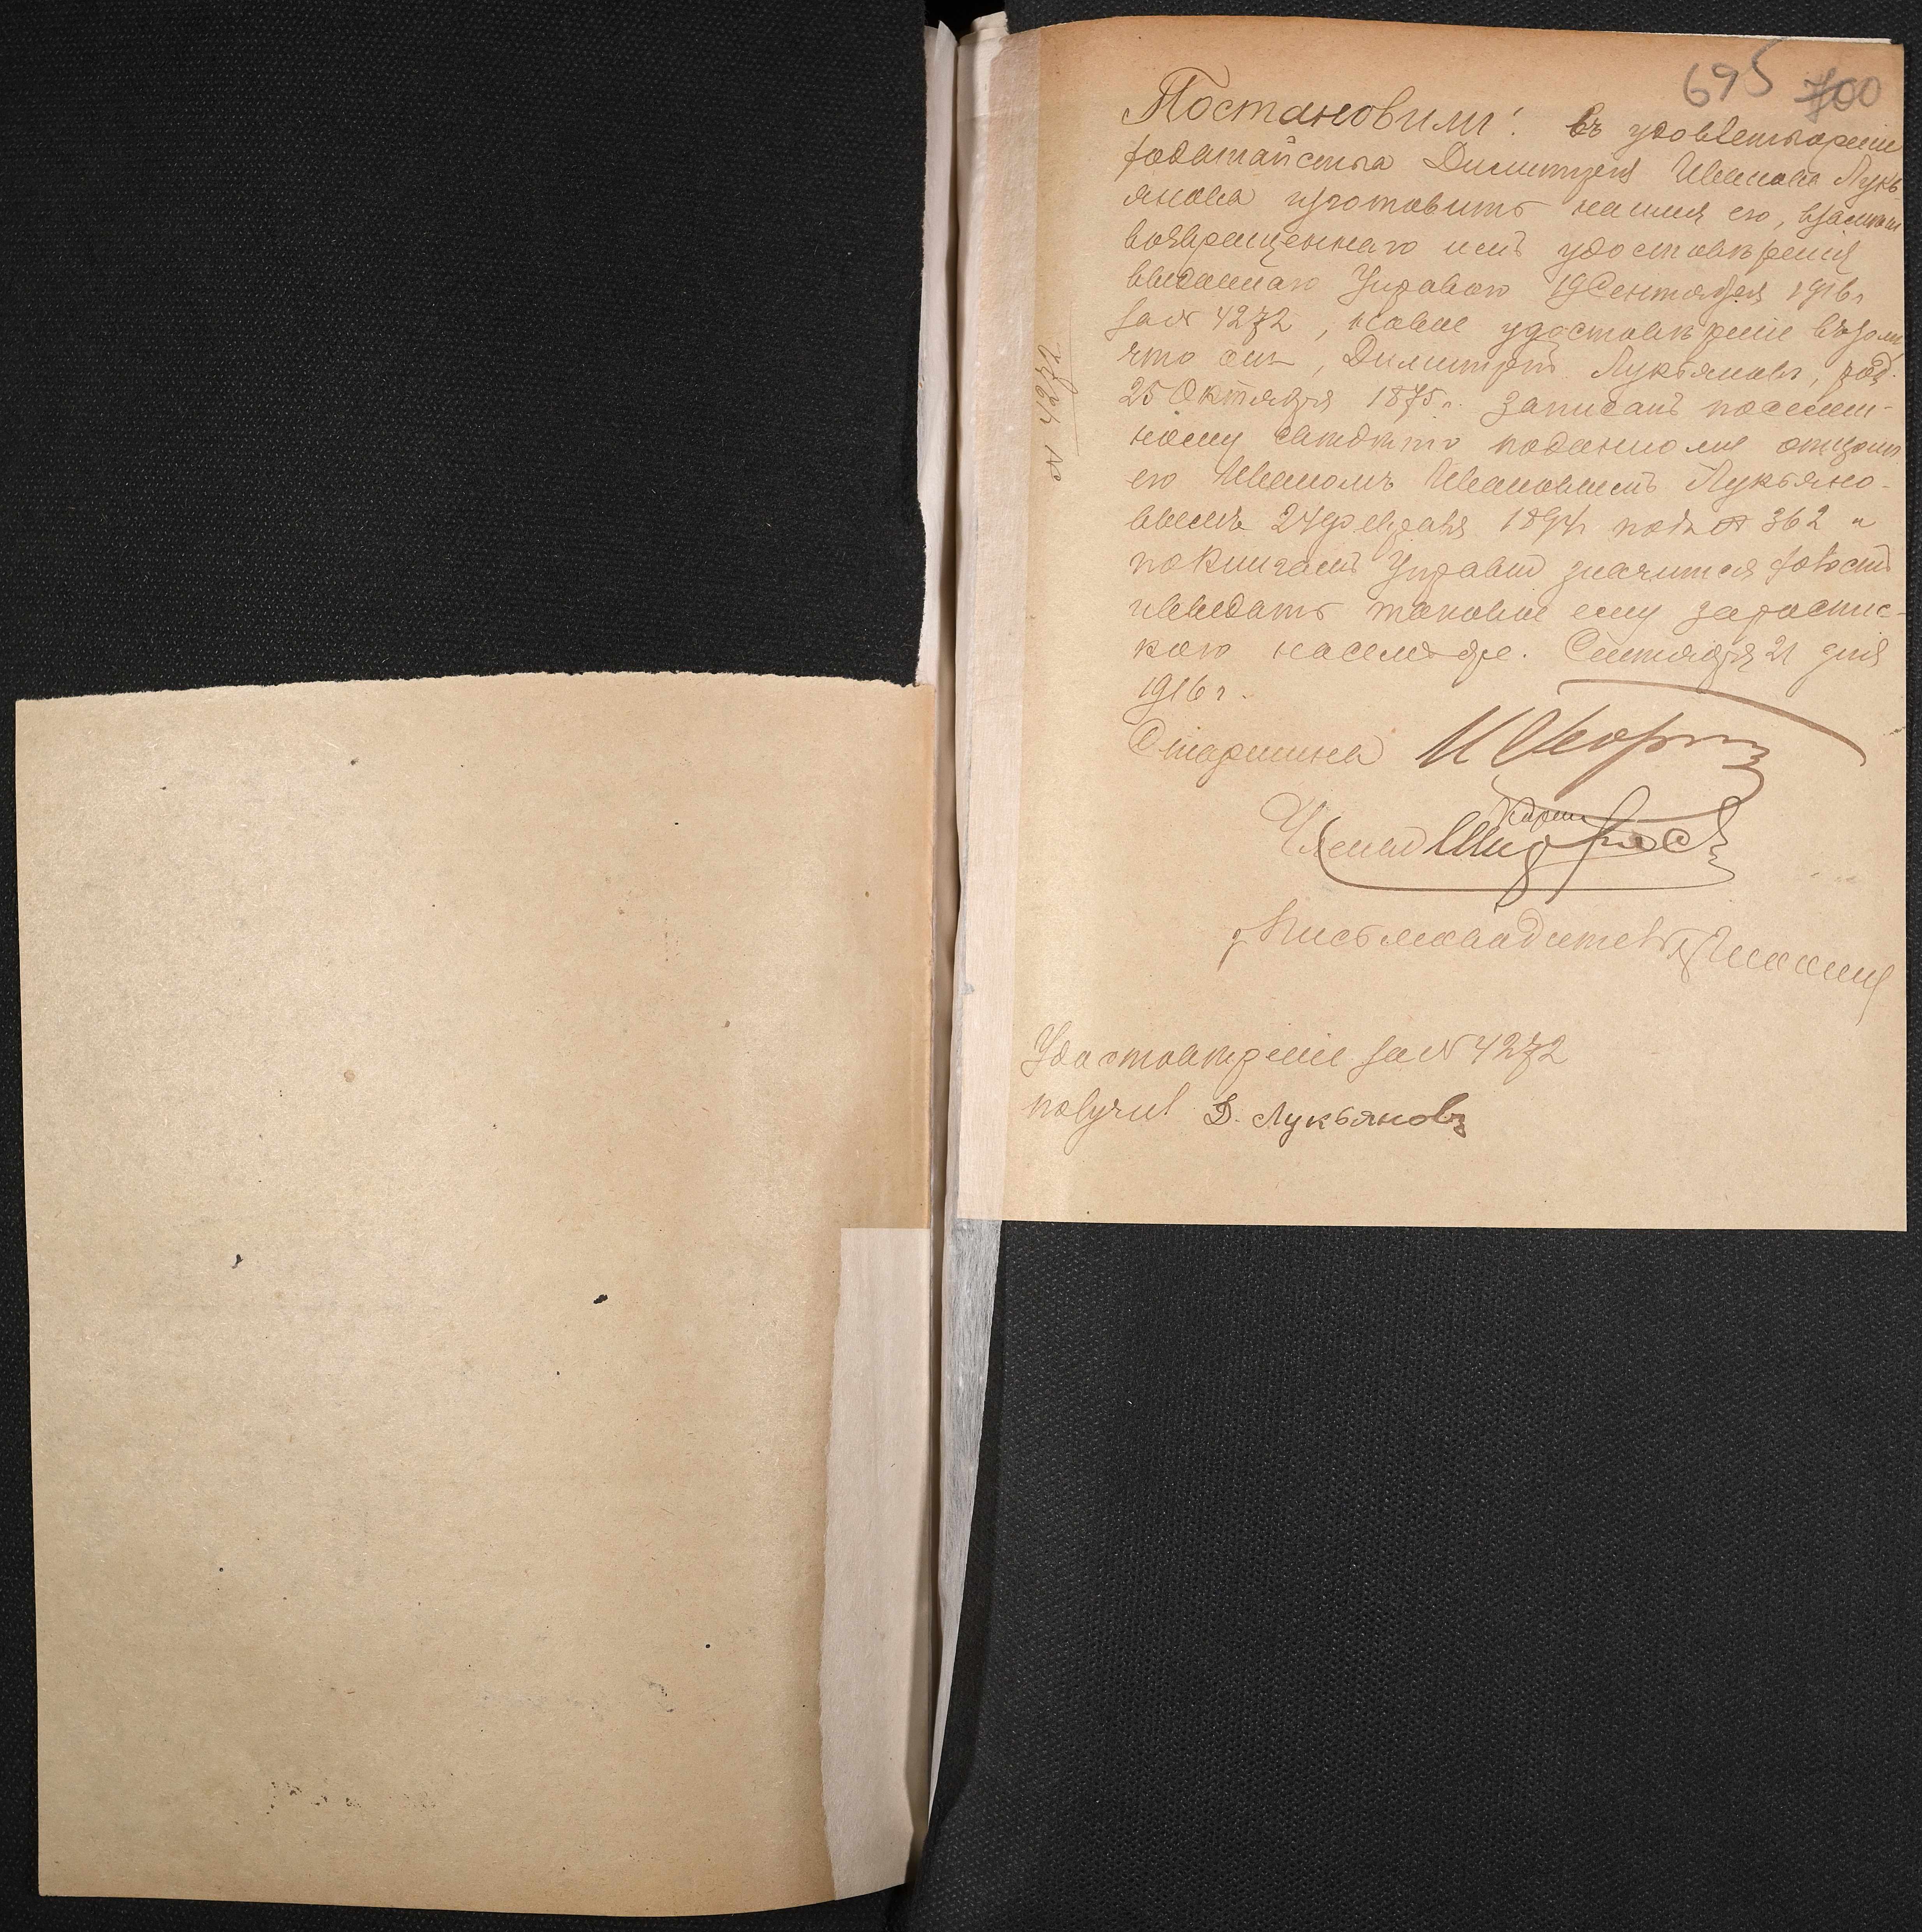 695 700
Постановили: въ удовлетвореніе
ходатайства Димитрія Иванова Лукь
янова изготовить на имя его, взамѣнъ
возвращеннаго имъ удостовѣренія
выданнаго Управою 19 Сентября 1916 г
за № 4272, новое удостовѣреніе въ томъ
что онъ, Димитрій Лукьяновъ, род.
25 Октября 1875 г. записанъ по семей-
ному поданному отцомъ
его Иваномъ Ивановымъ Лукьяно-
вымъ 24 февраля 1894 г подъ № 362 и
по книгамъ Управы значится холостъ
и выдать таковое ему за распис-
кою на семъ же. Сентября 21 дня
1916 г.
Старшина
Члены
Письмоводитель
Удостовѣреніе за № 4272
получилъ Д. Лукьяновъ
№ 4272